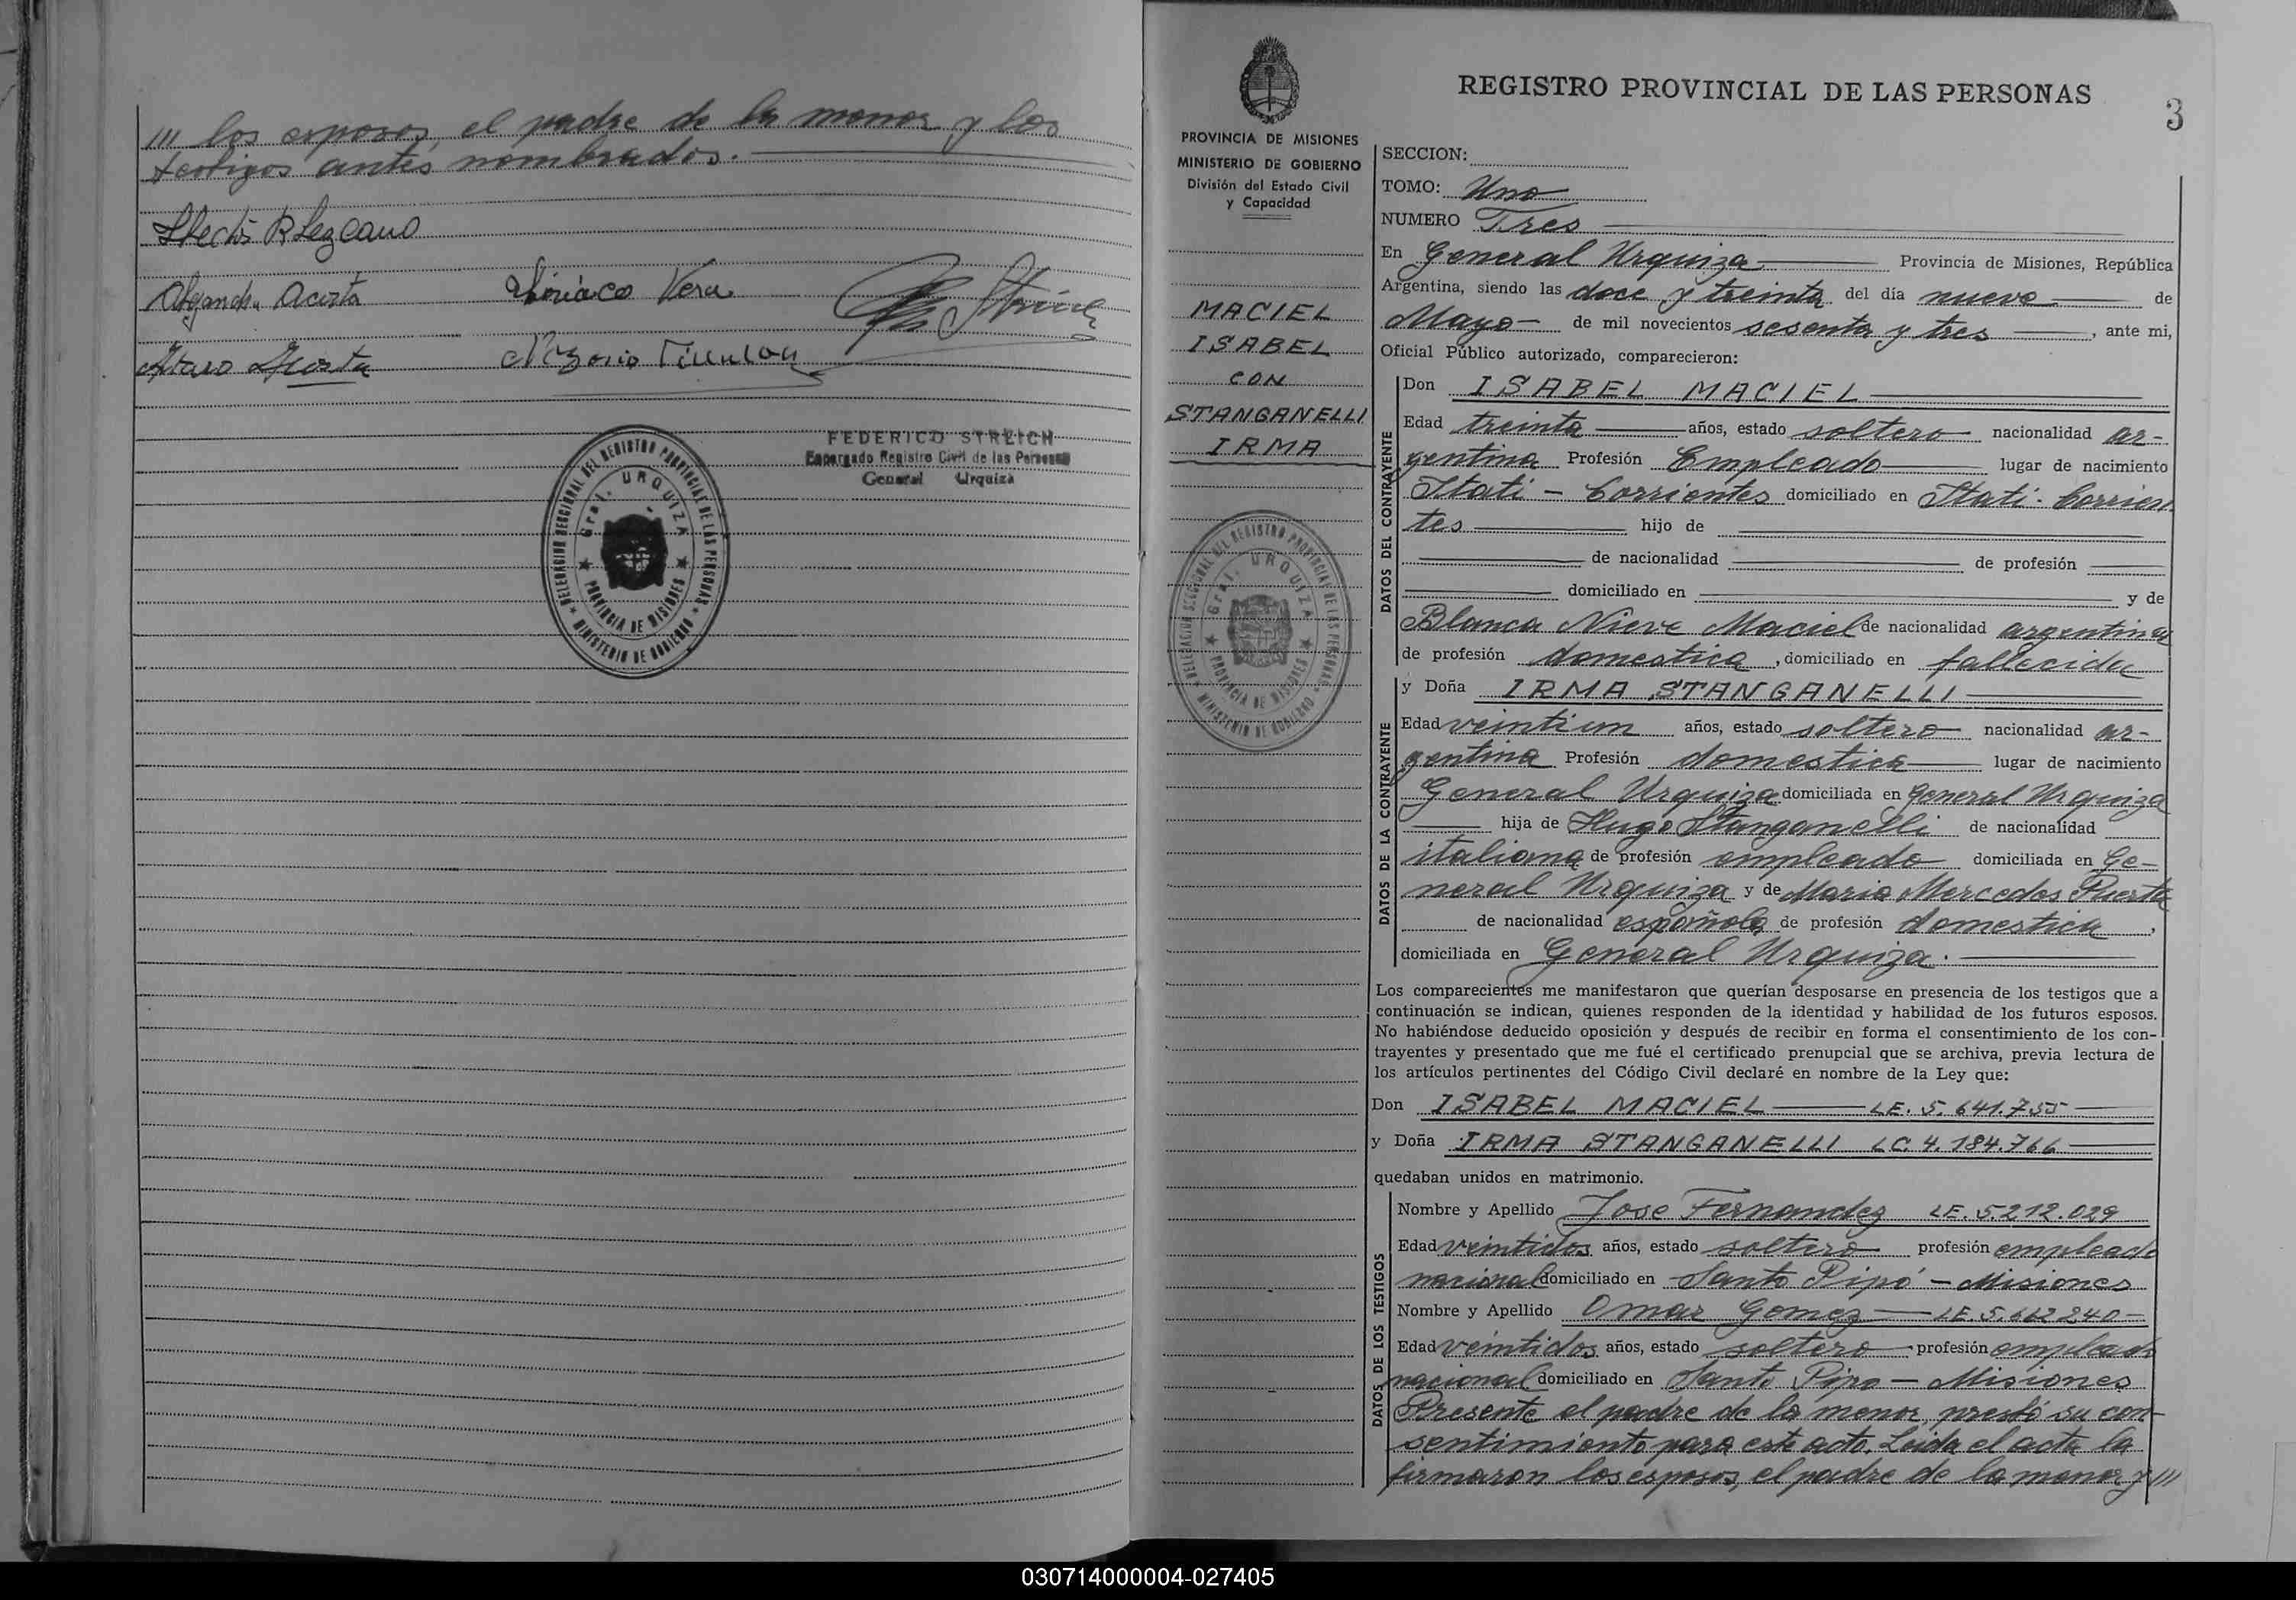 /// los esposos, el padre de la menor y los
testigos antes nombrados.
Alejandra Acosta
Ciriaco Vera
Arturo Acosta
FEDERICO STREICH
Encargado Registro Civil de las Personas
General Urquiza
DELEGACION SECCIONAL DEL REGISTRO PROVINCIAL DE LAS PERSONAS
Gral. URQUIZA
PROVINCIA DE MISIONES
MINISTERIO DE GOBIERNO
PROVINCIA DE MISIONES
MINISTERIO DE GOBIERNO
División del Estado Civil
y Capacidad
MACIEL
ISABEL
CON
STANGANELLI
IRMA
DELEGACION SECCIONAL DEL REGISTRO PROVINCIAL DE LAS PERSONAS
Gral. URQUIZA
PROVINCIA DE MISIONES
MINISTERIO DE GOBIERNO
REGISTRO PROVINCIAL DE LAS PERSONAS
3
SECCION:
TOMO: Uno
NUMERO Tres
En General Urquiza Provincia de Misiones, República
Argentina, siendo las doce y treinta del día nueve de
Mayo de mil novecientos sesenta y tres, ante mi,
Oficial Público autorizado, comparecieron:
DATOS DEL CONTRAYENTE
Don ISABEL MACIEL
Edad treinta años, estado soltero nacionalidad ar-
gentina Profesión Empleado lugar de nacimiento
Itati - Corrientes domiciliado en Itati - Corrien
tes hijo de
de nacionalidad de profesión
domiciliado en y de
Blanca Nieve Maciel de nacionalidad argentina
de profesión domestica, domiciliado en fallecida
DATOS DE LA CONTRAYENTE
y Doña IRMA STANGANELLI
Edad veintiun años, estado soltero nacionalidad ar-
gentina Profesión domestica lugar de nacimiento
General Urquiza domiciliada en General Urquiza
hija de Hugo Stanganelli de nacionalidad
italiana de profesión empleado domiciliada en Ge-
neral Urquiza y de Maria Mercedes Puerta
de nacionalidad española de profesión domestica,
domiciliada en General Urquiza.
Los comparecientes me manifestaron que querían desposarse en presencia de los testigos que a
continuación se indican, quienes responden de la identidad y habilidad de los futuros esposos.
No habiéndose deducido oposición y después de recibir en forma el consentimiento de los con-
trayentes y presentado que me fué el certificado prenupcial que se archiva, previa lectura de
los artículos pertinentes del Código Civil declaré en nombre de la Ley que:
Don ISABEL MACIEL LE. 5.641.755
y Doña IRMA STANGANELLI LC. 4.184.766
quedaban unidos en matrimonio.
DATOS DE LOS TESTIGOS
Nombre y Apellido Jose Fernandez LE. 5.212.029
Edad veintidos años, estado soltero profesión empleado
nacional domiciliado en Santo Pipó - Misiones
Nombre y Apellido Omar Gomez LE. 5.662.240
Edad veintidos años, estado soltero profesión empleado
nacional domiciliado en Santo Pipo - Misiones
Presente el padre de la menor, prestó su con-
sentimiento para este acto. Leida el acta la
firmaron los esposos, el padre de la menor y ///
030714000004-027405